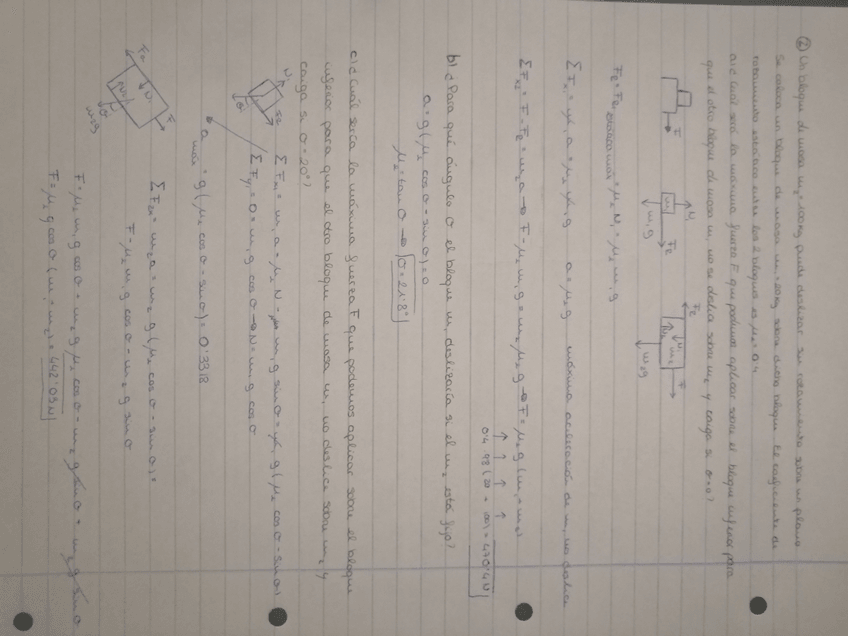 ② Un bloque de masa m₂=100kg puede deslizar sin rozamiento sobre un plano
Se coloca un bloque de masa m₁=20kg sobre dicho bloque. El coeficiente de
rozamiento estático entre los 2 bloques es μ₂=0'4
a) ¿Cuál será la máxima fuerza F que podemos aplicar sobre el bloque inferior para
que el otro bloque de masa m₁ no se deslice sobre m₂ y caiga si σ=0?
F
N₁ m₁ Fe m₁g
Fe N₂ m₁ F m₂g
Fe=Fe, estática max=μ₂N₁=μ₂m₁g
ΣFx₁=m₁a=μ₂m₁g a=μ₂g máxima aceleración de m₁ no deslice
ΣFx₂=F-Fe=m₂a→F-μ₂m₁g=m₂μ₂g→F=μ₂g(m₁+m₂)
↑ ↑ ↑ ↑
0'4 9'8(20+100)=470'4N
b) ¿Para qué ángulo σ el bloque m₁ deslizaría si el m₂ está fijo?
a=g(μ₂cosσ-sinσ)=0
μ₂=tanσ→σ=21'8°
c) ¿Cuál sería la máxima fuerza F que podemos aplicar sobre el bloque
inferior para que el otro bloque de masa m₁ no deslice sobre m₂ y
caiga si σ=20°?
ΣFx₁=m₁a=μ₂N-m₁g sinσ=m₁g(μ₂cosσ-sinσ)
ΣFy₁=0=m₁g cosσ→N=m₁g cosσ
a max=g(μ₂cosσ-sinσ)=0'3318
ΣF₂x=m₂a=m₂g(μ₂cosσ-sinσ)=
F-μ₂m₁g cosσ-m₂g sinσ
F=μ₂m₁g cosσ+m₂gμ₂cosσ-m₂g sinσ+m₂g sinσ
F=μ₂g cosσ(m₁+m₂)=442'03N